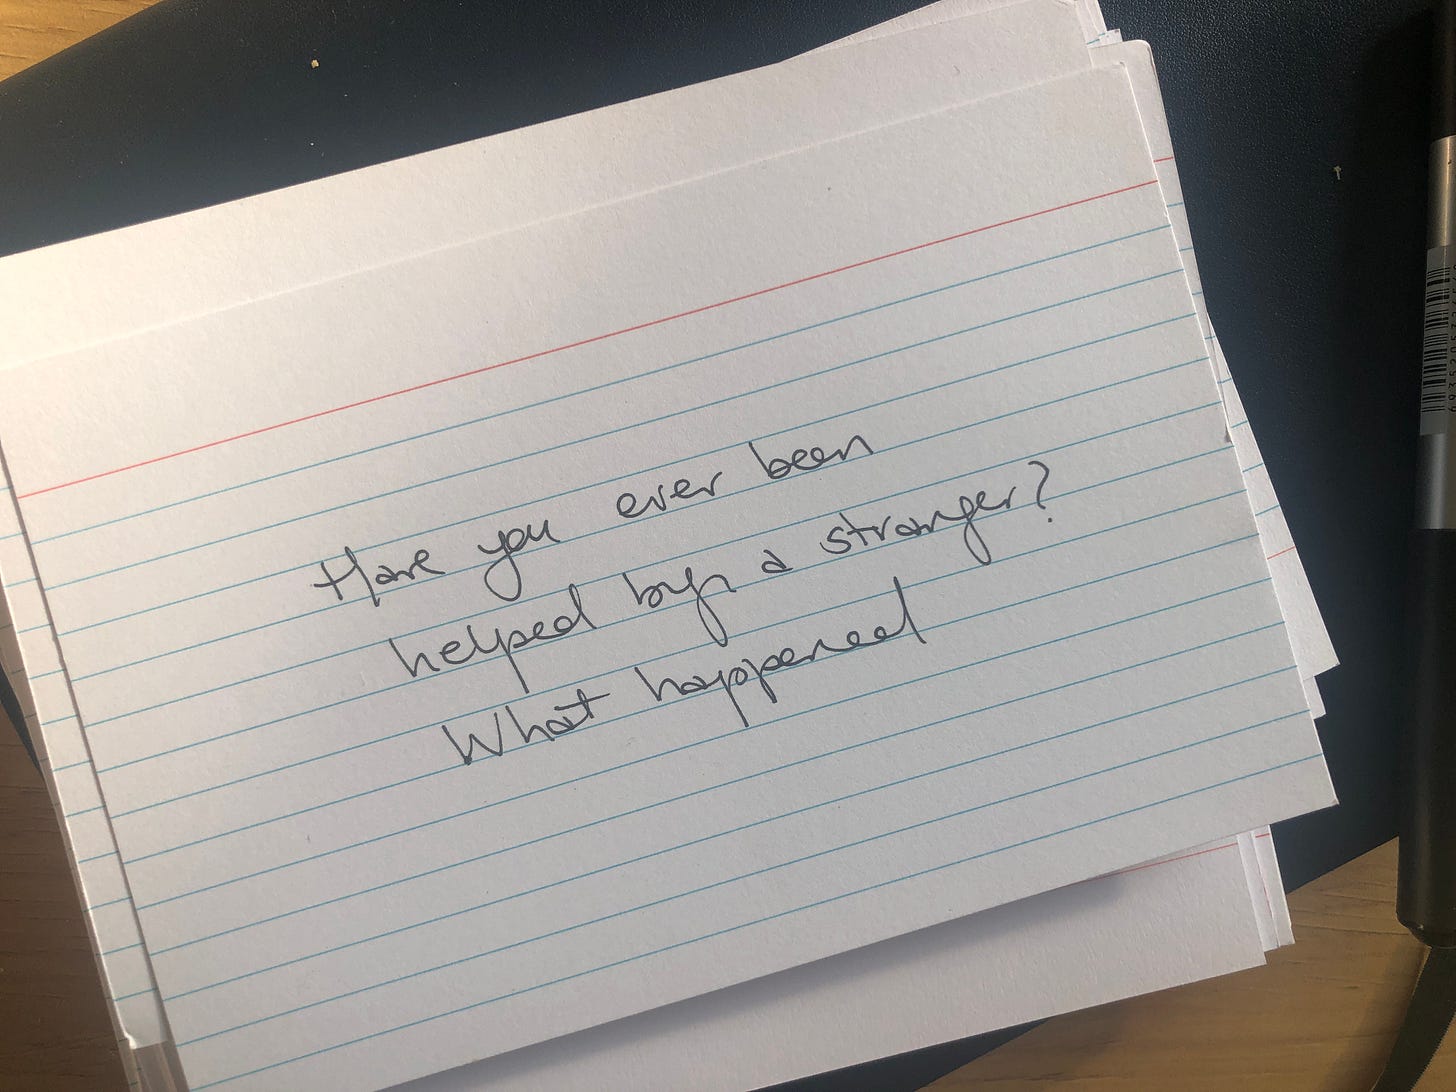 Have you ever been
helped by a stranger?
What happened